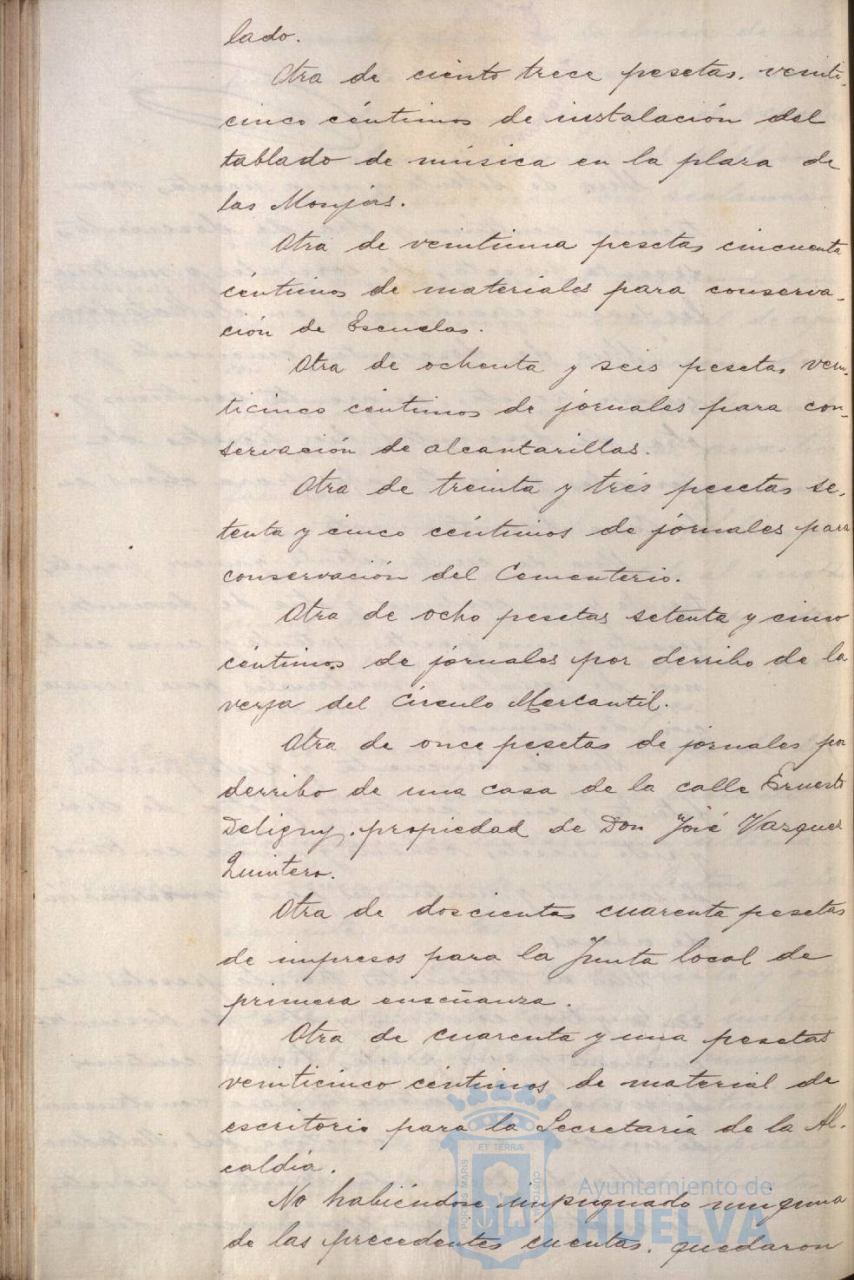 lado.
Otra de ciento trece pesetas. veinti-
cinco céntimos de instalación del
tablado de música en la plaza de
las Monjas.
Otra de veintiuna pesetas cincuenta
céntimos de materiales para conserva-
ción de Escuelas.
Otra de ochenta y seis pesetas vein-
ticinco céntimos de jornales para con-
servación de alcantarillas.
Otra de treinta y tres pesetas se-
tenta y cinco céntimos de jornales para
conservación del Cementerio.
Otra de ocho pesetas setenta y cinco
céntimos de jornales por derribo de la
verja del Círculo Mercantil.
Otra de once pesetas de jornales por
derribo de una casa de la calle Ernesto
Deligny, propiedad de Don José Vazquez
Quintero.
Otra de doscientas cuarenta pesetas
de impresos para la Junta local de
primera enseñanza.
Otra de cuarenta y una pesetas
veinticinco céntimos de material de
escritorio para la Secretaría de la Al-
caldía.
No habiéndose impugnado ninguna
de las precedentes cuentas, quedaron
ET TERRA
PORTUS MARIS
CUSTODIA
Ayuntamiento de
HUELVA